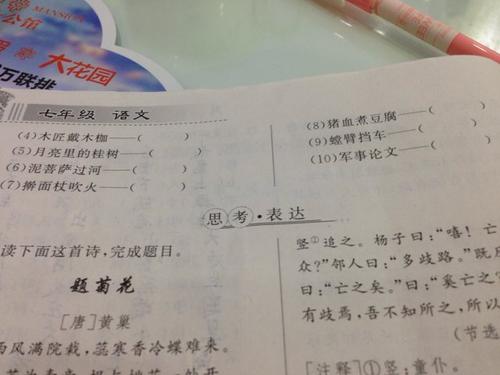 MANSION
公馆
大花园
万联排
七年级 语文
(4)木匠戴木枷——( )
(5)月亮里的桂树——( )
(6)泥菩萨过河——( )
(7)擀面杖吹火——( )
(8)猪血煮豆腐——( )
(9)螳臂挡车——( )
(10)军事论文——( )
思考·表达
读下面这首诗,完成题目。
题菊花
[唐]黄巢
西风满院栽,蕊寒香冷蝶难来。
竖①追之。杨子曰:“嘻!亡
众?”邻人曰:“多歧路。”既反
曰:“亡之矣。”曰:“奚亡之
有歧焉,吾不知所之,所以
(节选
[注释]①竖:童仆。